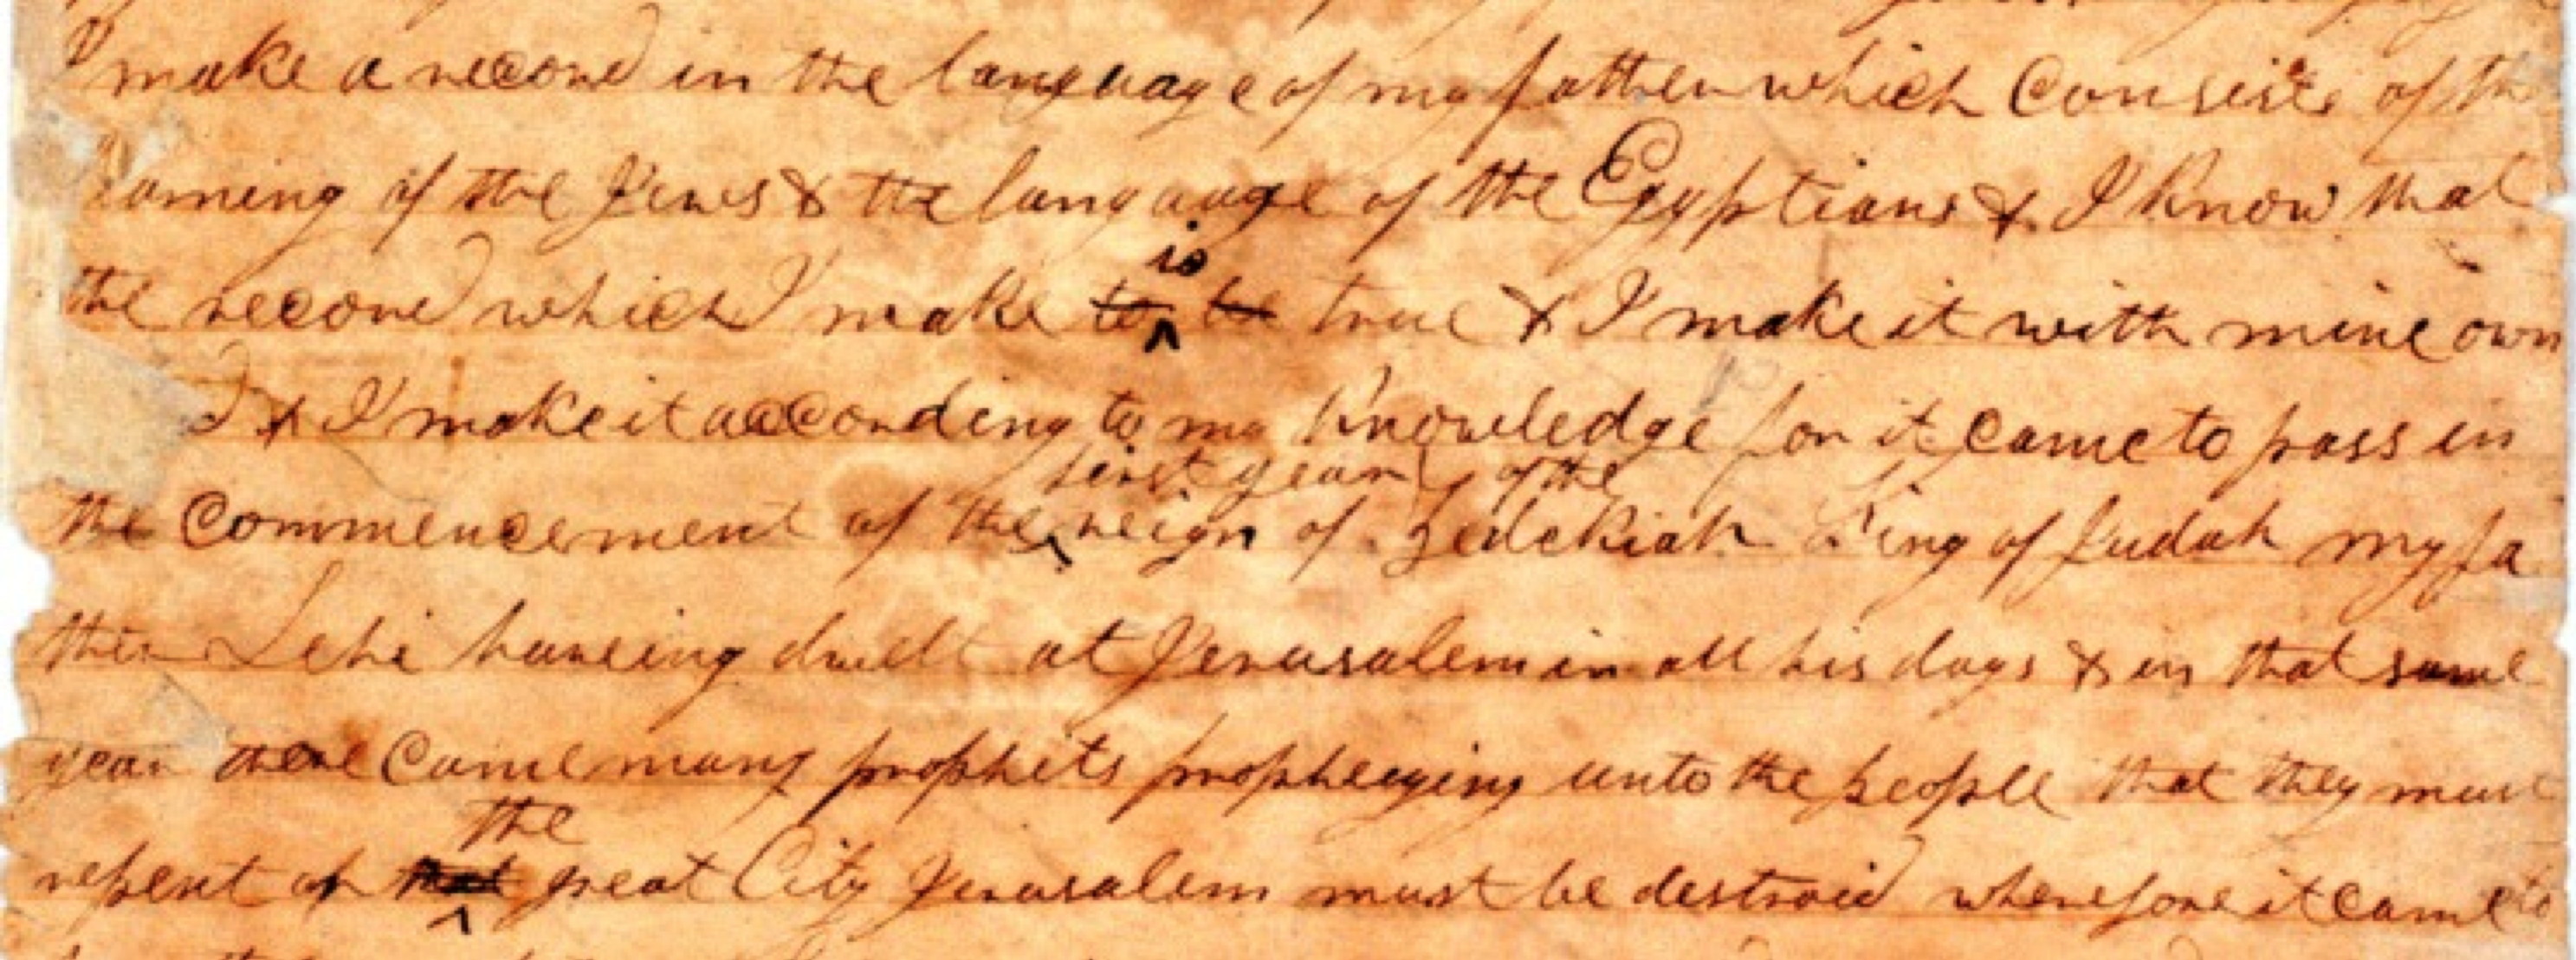 I make a record in the language of my father which consists of the
learning of the Jews & the language of the Egyptians & I know that
is
the record which I make to be true & I make it with mine own
& I make it according to my knowledge for it came to pass in
first year of the
the commencement of the reign of Zedekiah King of Judah my fa
ther Lehi haveing dwelt at Jerusalem in all his days & in that same
year there came many prophets prophesying unto the people that they must
the
repent or that great City Jerusalem must be destroid wherefore it came to